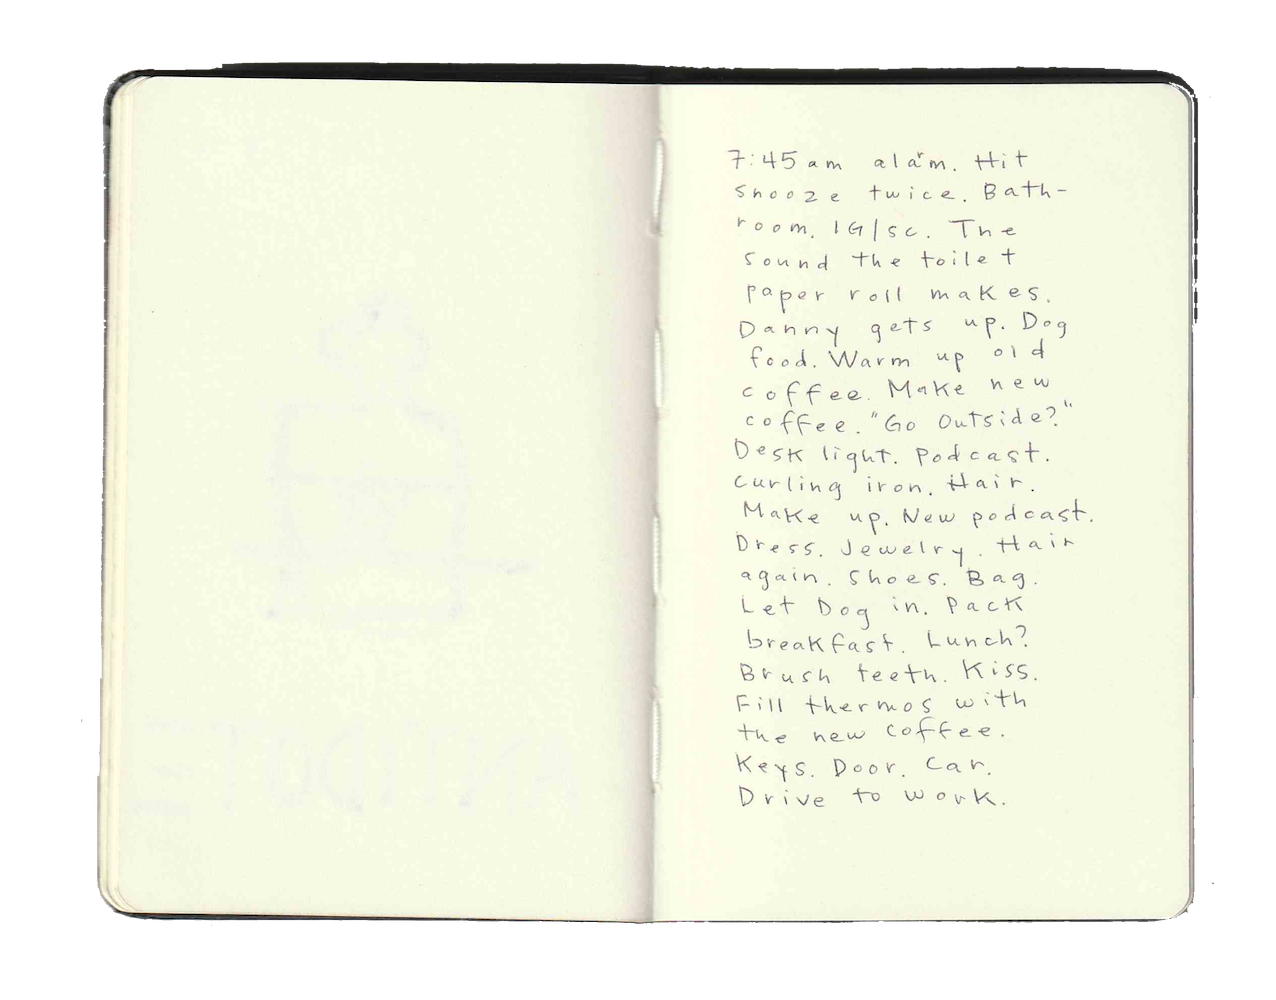 7:45 am alarm. Hit
snooze twice. Bath-
room. IG/sc. The
sound the toilet
paper roll makes.
Danny gets up. Dog
food. Warm up old
coffee. Make new
coffee. "Go Outside?"
Desk light. Podcast.
Curling iron. Hair.
Make up. New podcast.
Dress. Jewelry. Hair
again. Shoes. Bag.
Let Dog in. Pack
breakfast. Lunch?
Brush teeth. Kiss.
Fill thermos with
the new coffee.
Keys. Door. Car.
Drive to work.